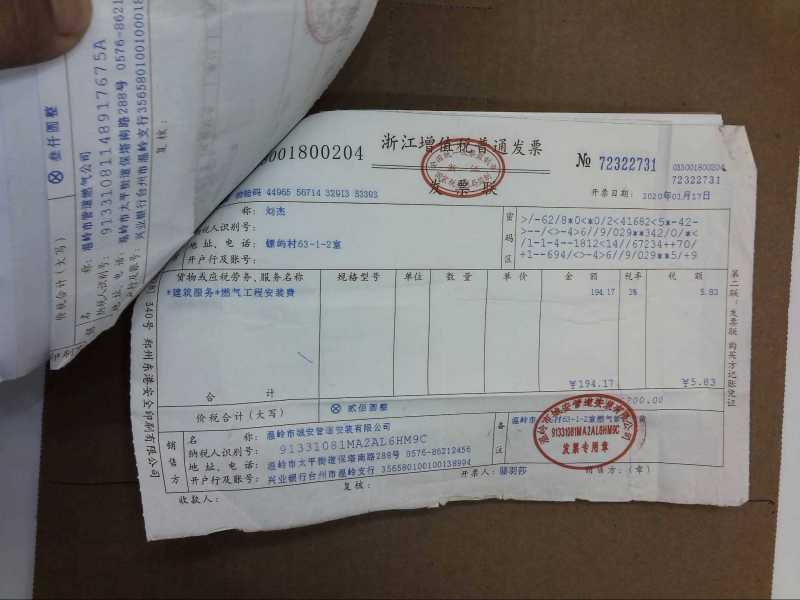 浙江增值税普通发票
发票联
浙江
3001800204
№ 72322731
033001800204
72322731
开票日期: 2020年03月17日
验码 44965 56714 32913 53393
名 称: 刘杰
纳税人识别号:
地址、电话: 螺屿村63-1-2室
开户行及账号:
密码区
>/-62/8*0<*0/2<41682<5*-42-
>--/<>-4>6//9/029**342/0/*<
/1-1-4--1812<14//67234++70/
+1--694/<>-4>6//9/029**5/+9
货物或应税劳务、服务名称 规格型号 单位 数量 单价 金额 税率 税额
*建筑服务*燃气工程安装费 194.17 3% 5.83
合计 ¥194.17 ¥5.83
价税合计(大写) ⊗ 贰佰圆整 200.00
销售方
名 称: 温岭市城安管道安装有限公司
纳税人识别号: 91331081MA2AL6HM9C
地址、电话: 温岭市太平街道保塔南路288号 0576-86212456
开户行及账号: 兴业银行台州市温岭支行 356580100100138994
备注
收款人:
复核:
开票人: 骆羽莎
销售方:(章)
温岭市城安管道安装有限公司
91331081MA2AL6HM9C
发票专用章
第二联:发票联 购买方记账凭证
340号 郑州东港安全印刷有限公司
价税合计(大写) ⊗ 叁仟圆整
名 称: 温岭市管道燃气公司
纳税人识别号: 91331081148917675A
地址、电话: 温岭市太平街道保塔南路288号 0576-8621
开户行及账号: 兴业银行台州市温岭支行 356580100100018
复核: